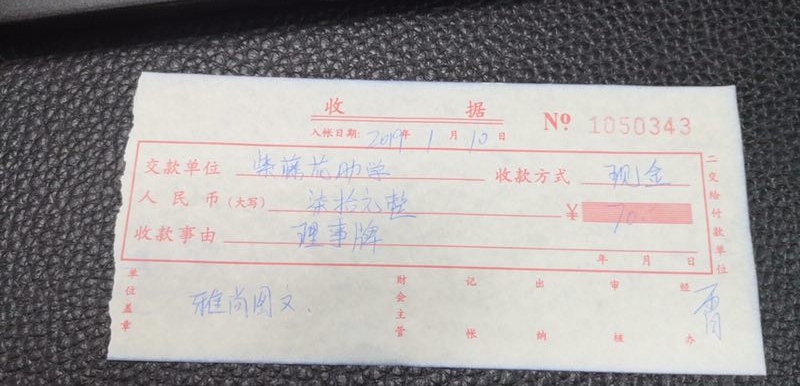 收 据
入帐日期: 2019年 1月 10日 Nº 1050343
交款单位 紫藤花助学 收款方式 现金
人民币(大写) 柒拾元整 ¥ 70
收款事由 理事牌
年 月 日
二交给付款单位
单位盖章 雅尚图文.
财会主管 记帐 出纳 审核 经办